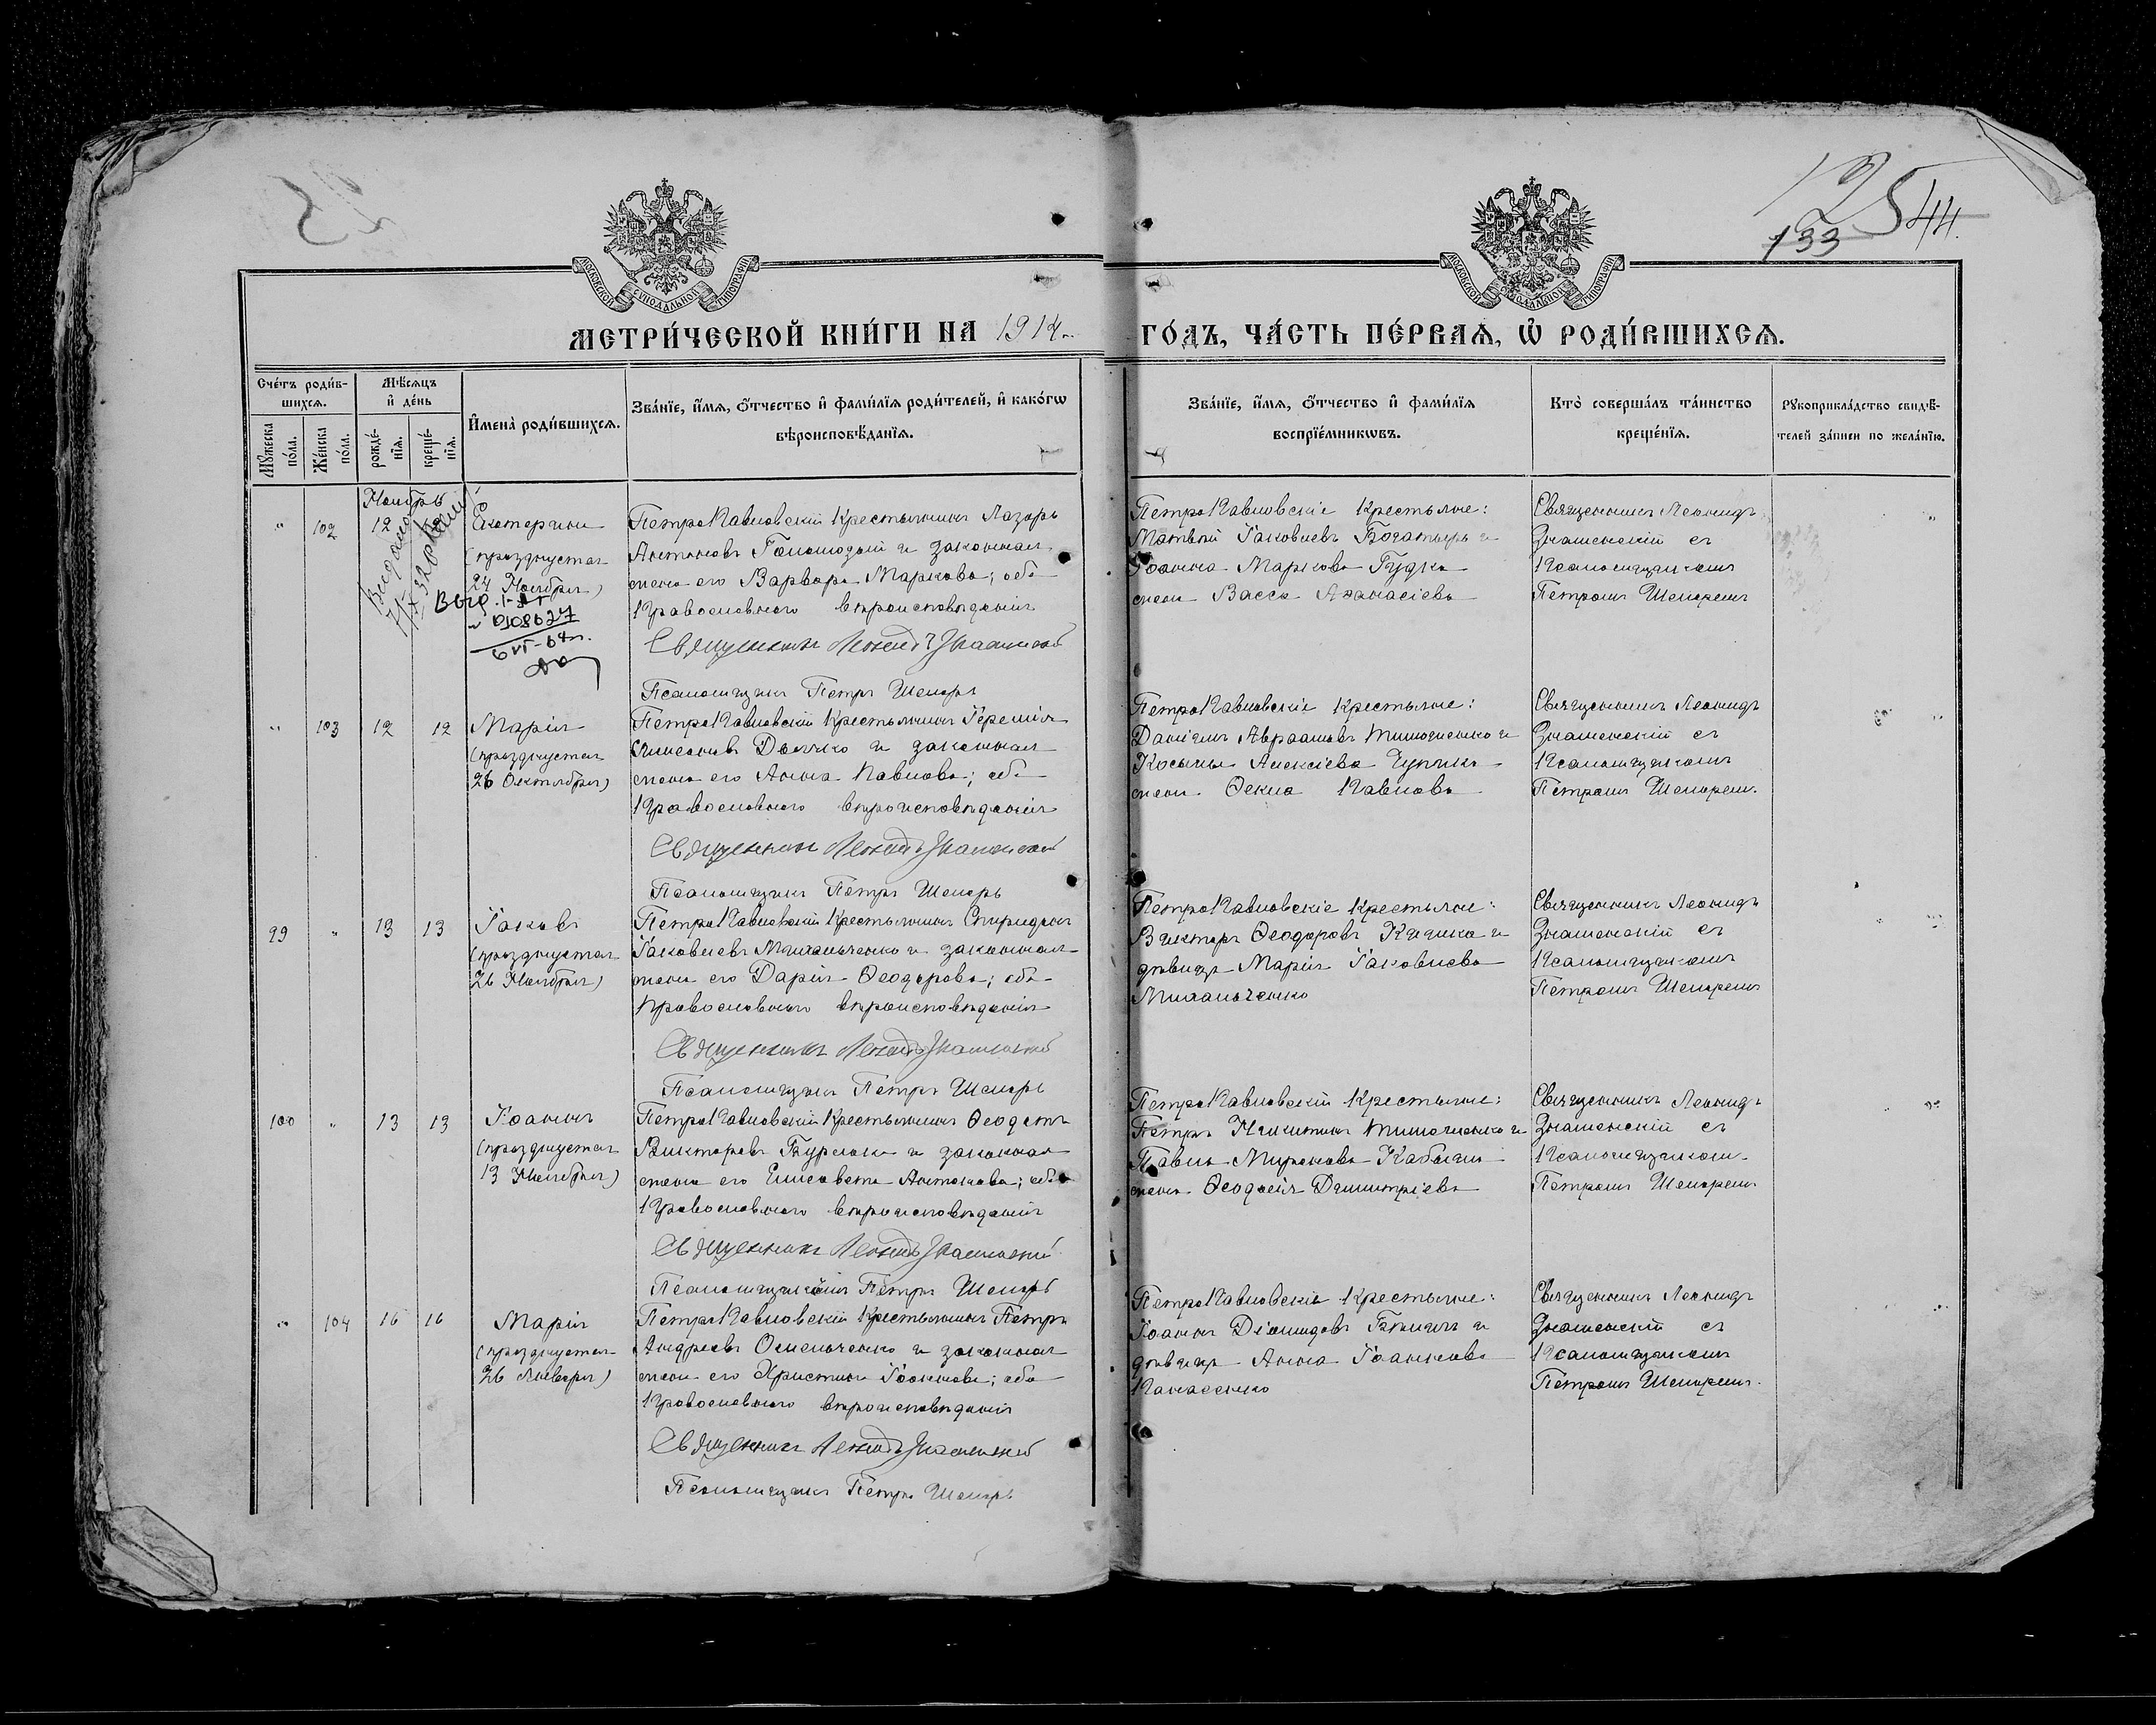 125
133
44.
МОСКОВСКОЙ СѴНОДАЛЬНОЙ ТИПОГРАФІИ
МОСКОВСКОЙ СѴНОДАЛЬНОЙ ТИПОГРАФІИ
МЕТРИ́ЧЕСКОЙ КНИ́ГИ НА 1914
ГО́ДЪ, ЧА́СТЬ ПЕ́РВАѦ, Ѡ҆ РОДИ́ВШИХСѦ.
Сче́тъ роди́в-
шихсѧ.
Мꙋ́жеска по́ла.
Же́нска по́ла.
Мѣ́сѧцъ
и҆ де́нь
рожде́-
нїѧ.
креще́-
нїѧ.
И҆мена̀ роди́вшихсѧ.
Зва́нїе, и҆́мѧ, ѻ҆́тчество и҆ фами́лїѧ роди́телей, и҆ како́гѡ
вѣроисповѣ́данїѧ.
Зва́нїе, и҆́мѧ, ѻ҆́тчество и҆ фами́лїѧ
воспрїе́мникѡвъ.
Кто̀ соверша́лъ та́инство
креще́нїѧ.
Рꙋкоприкла́дство свидѣ́-
телей за́писи по жела́нїю.
Ноябрь
" 102 12
Екатерина
(празднуется
24 Ноября)
Выд.
0108627
Петро Павловскій Крестьянинъ Лазарь
Антоновъ и законная
жена его Варвара Маркова; оба
Православнаго вѣроисповѣданія
Священникъ Леонидъ Знаменскій
Псаломщикъ Петръ Шепарь
Петро Павловскіе Крестьяне:
Матвѣй Іаковлевъ Богатырь и
Іоанна Маркова Гудка
жена Васса Аѳанасіева
Священникъ Леонидъ
Знаменскій съ
Псаломщикомъ
Петромъ Шепаремъ
" 103 12 12
Марія
(празднуется
26 Октября)
Петро Павловскій Крестьянинъ Іеремія
Симеоновъ и законная
жена его Анна Павлова; оба
Православнаго вѣроисповѣданія
Священникъ Леонидъ Знаменскій
Псаломщикъ Петръ Шепарь
Петро Павловскіе Крестьяне:
Даніилъ Авраамовъ Тимошенко и
Косьмы Алексіева
жена Ѳекла Павлова
Священникъ Леонидъ
Знаменскій съ
Псаломщикомъ
Петромъ Шепарем.
99 " 13 13
Іаковъ
(празднуется
26 Ноября)
Петро Павловскій Крестьянинъ Спиридонъ
Іаковлевъ Михальченко и законная
жена его Дарія Ѳеодорова; оба
Православнаго вѣроисповѣданія
Священникъ Леонидъ Знаменскій
Псаломщикъ Петръ Шепарь
Петро Павловскіе Крестьяне:
Викторъ Ѳеодоровъ и
дѣвица Марія Іаковлева
Михальченко
Священникъ Леонидъ
Знаменскій съ
Псаломщикомъ
Петромъ Шепаремъ
100 " 13 13
Іоаннъ
(празднуется
13 Ноября)
Петро Павловскій Крестьянинъ Ѳеодотъ
Викторовъ и законная
жена его Елисавета Антонова; оба
Православнаго вѣроисповѣданія
Священникъ Леонидъ Знаменскій
Псаломщикъ Петръ Шепарь
Петро Павловскій Крестьяне:
Петръ Никитинъ Тимошенко и
Павла Миронова
жена Ѳеодосія Димитріева
Священникъ Леонидъ
Знаменскій съ
Псаломщиком.
Петромъ Шепаремъ
" 104 16 16
Марія
(празднуется
26 Января)
Петро Павловскій Крестьянинъ Петръ
Андреевъ Омельченко и законная
жена его Христина Іоаннова; оба
Православнаго вѣроисповѣданія
Священникъ Леонидъ Знаменскій
Псаломщикъ Петръ Шепарь
Петро Павловскіе Крестьяне:
Іоаннъ Діомидовъ и
дѣвица Анна Іоаннова
Панасенко
Священникъ Леонидъ
Знаменскій съ
Псаломщикомъ
Петромъ Шепаремъ.